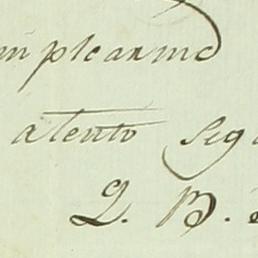 mplearme
atento seg
Q. B.